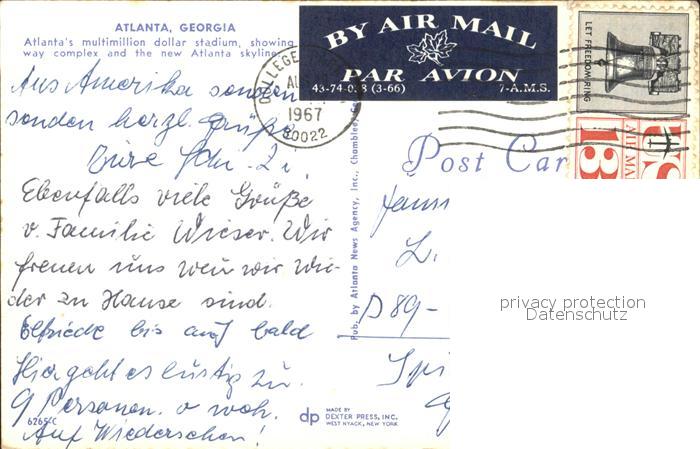 ATLANTA, GEORGIA
Atlanta's multimillion dollar stadium, showing
way complex and the new Atlanta skyline
Aus Amerika senden
senden herzl. Grüße
Eure
Ebenfalls viele Grüße
v. Familie Wieser. Wir
freuen uns wen wir wie-
der zu Hause sind.
Elfriede bis auf bald
Hier geht es lustig zu.
9 Personen. u woh.
Auf Wiedersehen!
6265/C
Pub. by Atlanta News Agency, Inc., Chamblee,
dp
MADE BY
DEXTER PRESS, INC.
WEST NYACK, NEW YORK
COLLEGE
1967
30022
BY AIR MAIL
PAR AVION
43-74-028 (3-66)
7-A.M.S.
LET FREEDOM RING
US
AIR MA
13
Post Car
D 89-
privacy protection
Datenschutz